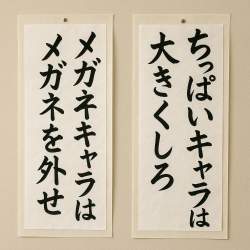 メガネキャラは
メガネを外せ
ちっぱいキャラは
大きくしろ